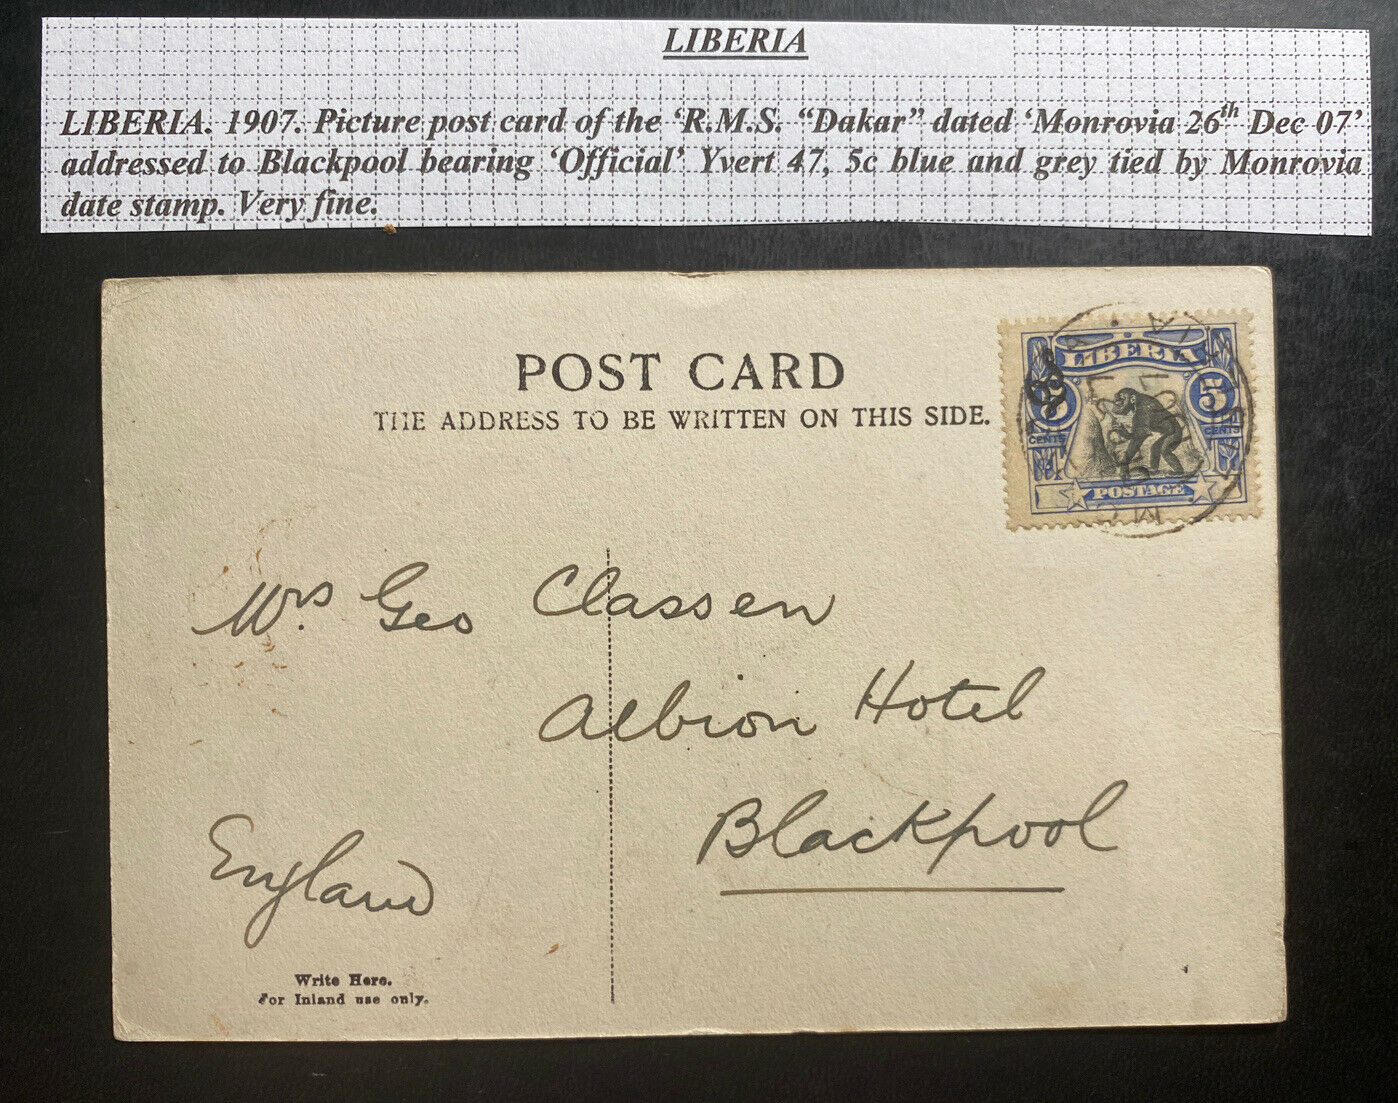 LIBERIA
LIBERIA. 1907. Picture post card of the ‘R.M.S. “Dakar” dated ‘Monrovia 26th Dec 07’
addressed to Blackpool bearing ‘Official’ Yvert 47, 5c blue and grey tied by Monrovia
date stamp. Very fine.
POST CARD
THE ADDRESS TO BE WRITTEN ON THIS SIDE.
LIBERIA
5
CENTS
CENTS
POSTAGE
Mrs. Geo Classen
Albion Hotel
Blackpool
England
Write Here.
For Inland use only.